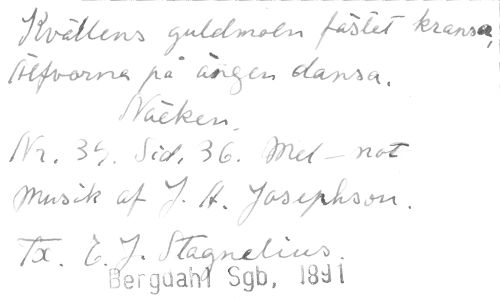 Kvällens guldmoln fästet kransa,
Älfvorna på ängen dansa.
Näcken.
Nr. 39. Sid. 36. Mel – not
musik af J. A. Josephson.
Tx. E. J. Stagnelius.
Bergdahl Sgb, 1891